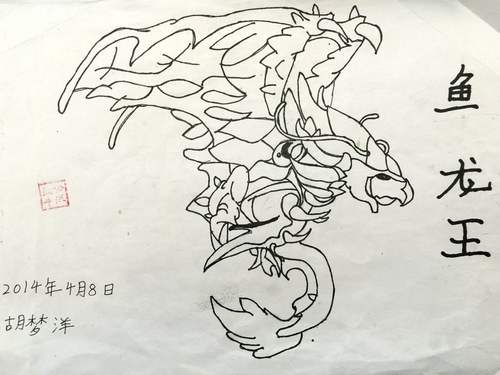 鱼龙王
2014年4月8日
胡梦洋